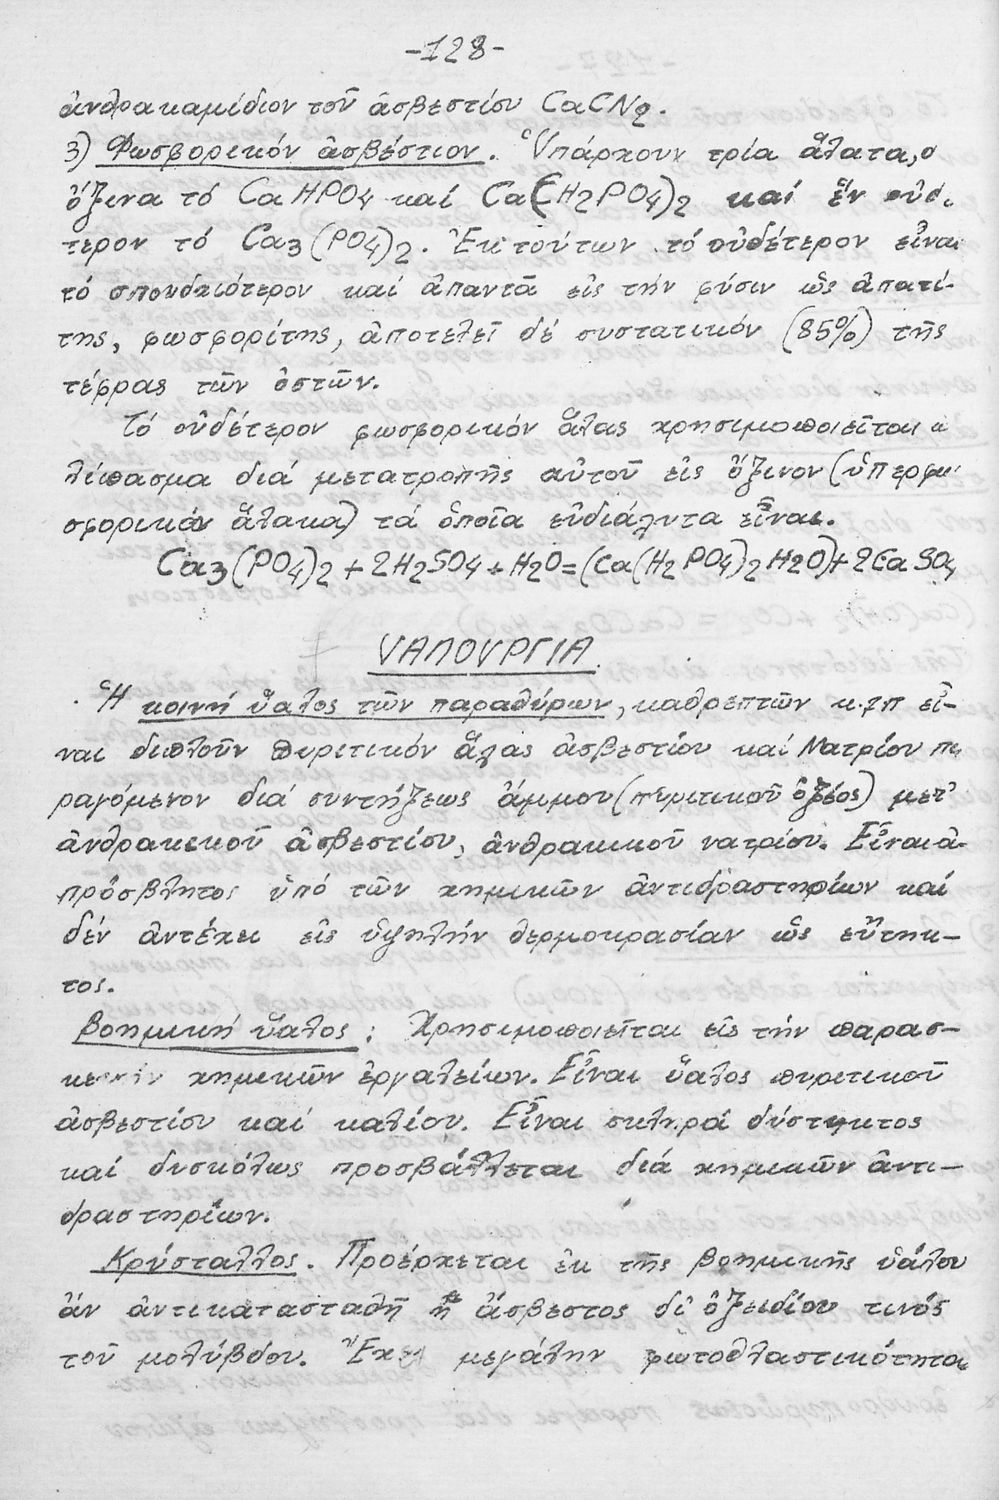 -128-
ἀνθρακαμίδιον τοῦ ἀσβεστίου CaCN2.
3) Φωσφορικόν ἀσβέστιον. Ὑπάρχουν τρία ἅλατα,
ὄξινα τό CaHPO4 καί Ca(H2PO4)2 καί ἕν οὐδ.
τερον τό Ca3(PO4)2. Ἐκ τούτων τό οὐδέτερον εἶναι
τό σπουδαιότερον καί ἀπαντᾶ εἰς τήν φύσιν ὡς ἀπατί-
της, φωσφορίτης, ἀποτελεῖ δέ συστατικόν (85%) τῆς
τέφρας τῶν ὀστῶν.
Τό οὐδέτερον φωσφορικόν ἅλας χρησιμοποιεῖται
λίπασμα διά μετατροπῆς αὐτοῦ εἰς ὄξινον (ὑπερφω
σφορικόν ἅλακα) τά ὁποῖα εὐδιάλυτα εἶναι.
Ca3(PO4)2 + 2H2SO4 + H2O = (Ca(H2PO4)2H2O) + 2CaSO4
ΥΑΛΟΥΡΓΙΑ
Ἡ κοινή ὕαλος τῶν παραθύρων, καθρεπτῶν κ.τπ εἶ-
ναι διπλοῦν πυριτικόν ἅλας ἀσβεστίου καί Νατρίου πα
ραγόμενον διά συντήξεως ἄμμου (πυριτικοῦ ὀξέος) μετ'
ἀνθρακικοῦ ἀσβεστίου, ἀνθρακικοῦ νατρίου. Εἶναι ἀ-
πρόσβλητος ὑπό τῶν χημικῶν ἀντιδραστηρίων καί
δέν ἀντέχει εἰς ὑψηλήν θερμοκρασίαν ὡς εὔτηκ-
τος.
Βοημική ὕαλος: Χρησιμοποιεῖται εἰς τήν παρασ-
χημικῶν ἐργαλείων. Εἶναι ὕαλος πυριτικοῦ
ἀσβεστίου καί καλίου. Εἶναι σκληρά δύστηκτος
καί δυσκόλως προσβάλλεται διά χημικῶν ἀντι-
δραστηρίων.
Κρύσταλλος. Προέρχεται ἐκ τῆς βοημικῆς ὑάλου
ἄν ἀντικατασταθῆ ἡ ἄσβεστος δι' ὀξειδίου τινός
τοῦ μολύβδου. Ἔχει μεγάλην φωτοθλαστικότητα